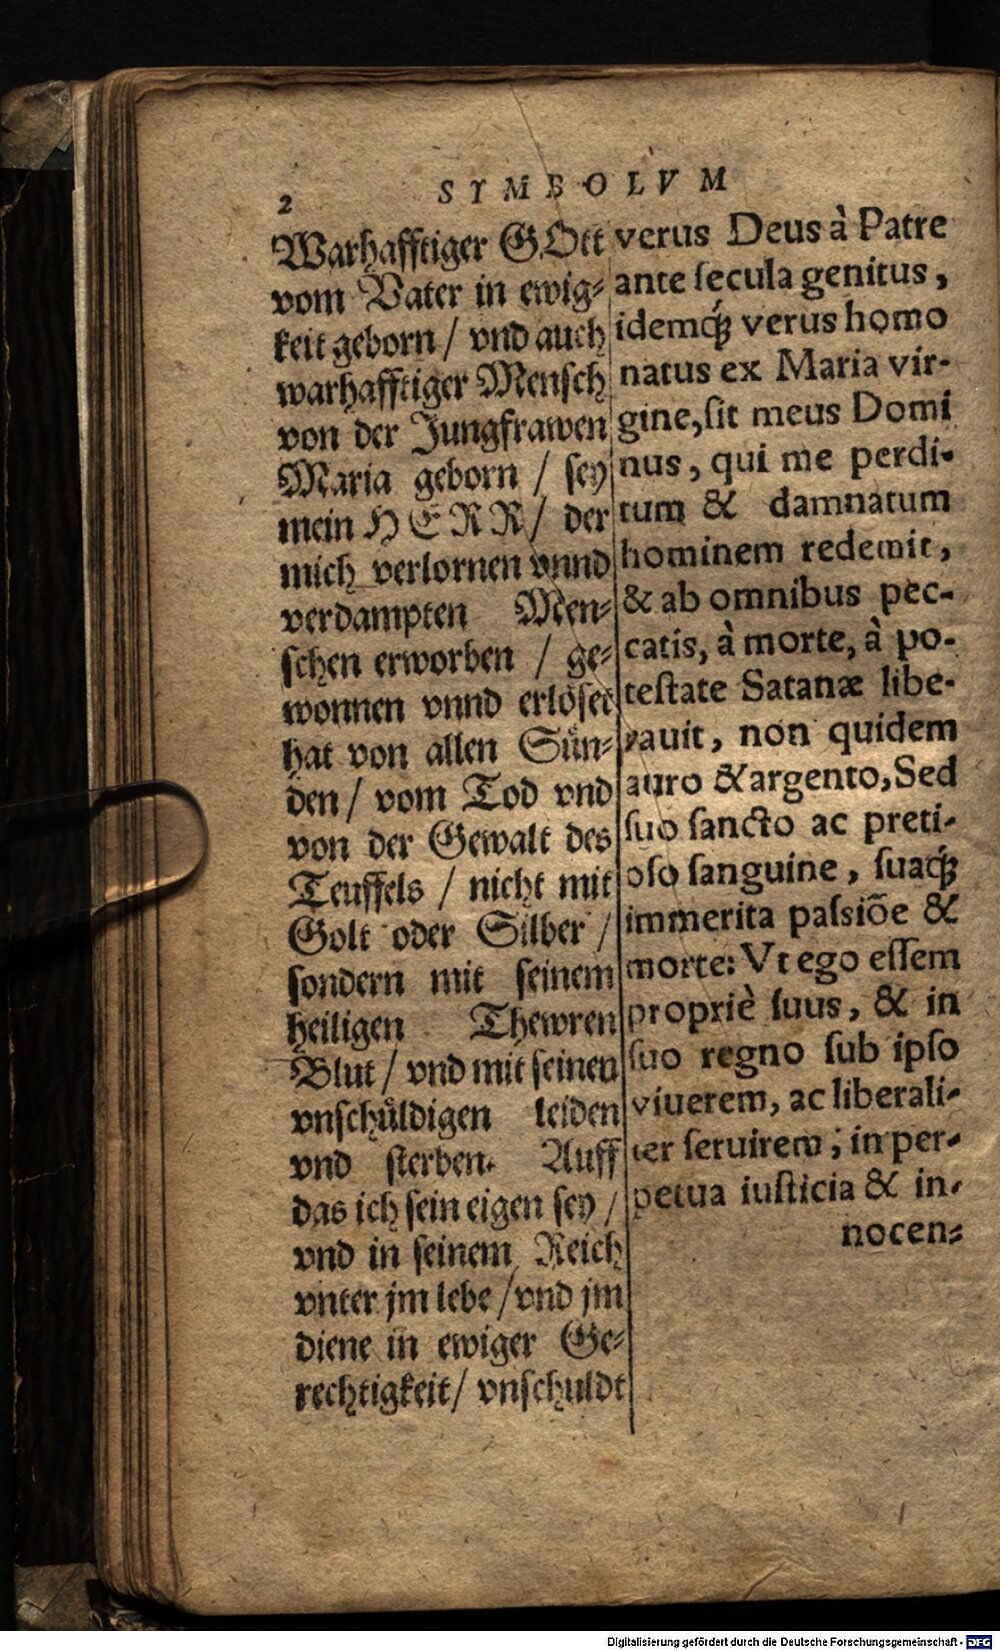 2 SYMBOLVM
Warhafftiger GOtt
vom Vater in ewig⸗
keit geborn / vnd auch
warhafftiger Mensch
von der Jungfrawen
Maria geborn / sey
mein HERR / der
mich verlornen vnnd
verdampten Men⸗
schen erworben / ge⸗
wonnen vnnd erlöset
hat von allen Sün⸗
den / vom Tod vnd
von der Gewalt des
Teuffels / nicht mit
Golt oder Silber /
sondern mit seinem
heiligen Thewren
Blut / vnd mit seinen
vnschüldigen leiden
vnd sterben. Auff
das ich sein eigen sey /
vnd in seinem Reich
vnter jm lebe / vnd jm
diene in ewiger Ge⸗
rechtigkeit / vnschuldt
verus Deus à Patre
ante ſecula genitus,
idemq́ꝫ verus homo
natus ex Maria vir-
gine, ſit meus Domi
nus, qui me perdi-
tum & damnatum
hominem redemit,
& ab omnibus pec-
catis, à morte, à po-
teſtate Satanæ libe-
rauit, non quidem
auro & argento, Sed
ſuo ſancto ac preti-
oſo ſanguine, ſuaq́ꝫ
immerita paſsiõe &
morte: Vt ego eſſem
propriè ſuus, & in
ſuo regno ſub ipſo
viuerem, ac liberali-
ter ſeruirem; in per-
petua iuſticia & in-
nocen⸗
Digitalisierung gefördert durch die Deutsche Forschungsgemeinschaft - DFG